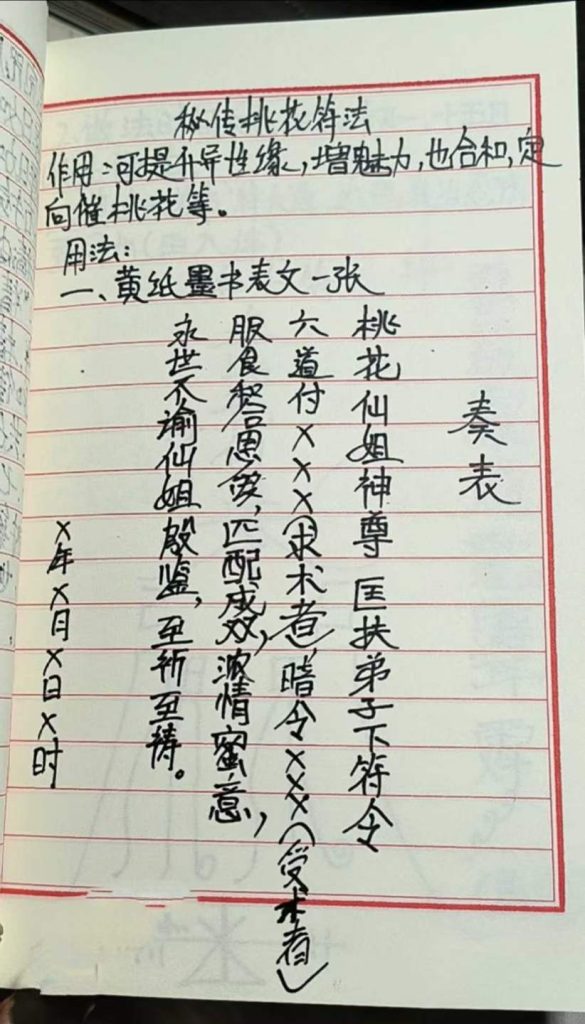 秘传桃花符法
作用：可提升异性缘，增魅力，也合和，定
向催桃花等。
用法：
一、黄纸墨书表文一张
奏表
桃花仙姐神尊 匡扶弟子下符令
六道付×××（求术者）暗令×××（受术者）
服食和合思爱，匹配成双，浓情蜜意，
永世不谕仙姐殷鉴，至祈至祷。
×年×月×日×时